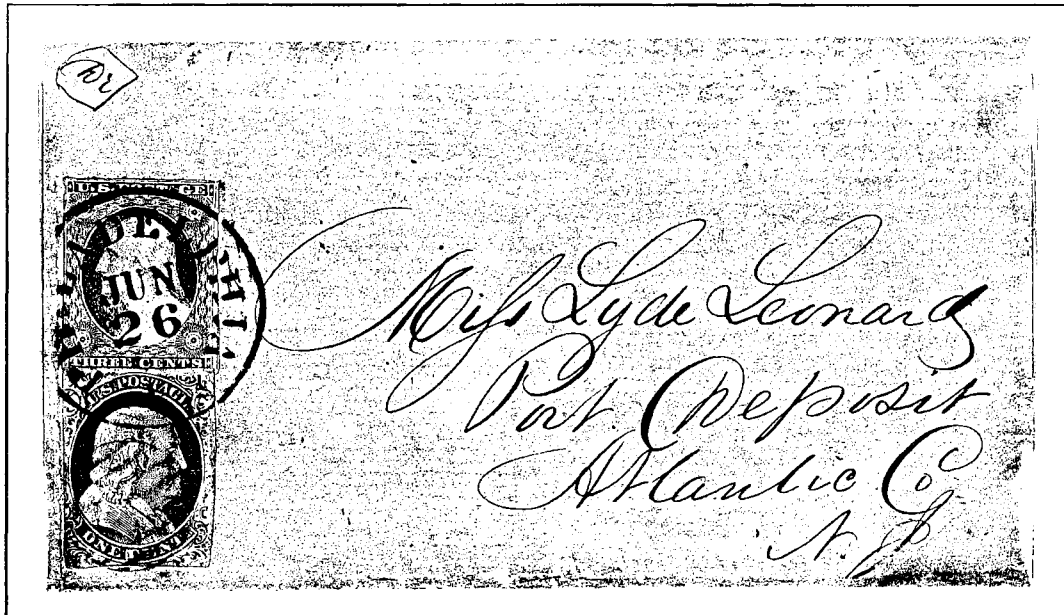 U.S. POSTAGE
PHILADELPHIA
JUN
26
THREE CENTS
U.S. POSTAGE
ONE CENT
Miss Lyde Leonard
Port Deposit
Atlantic Co
N. J